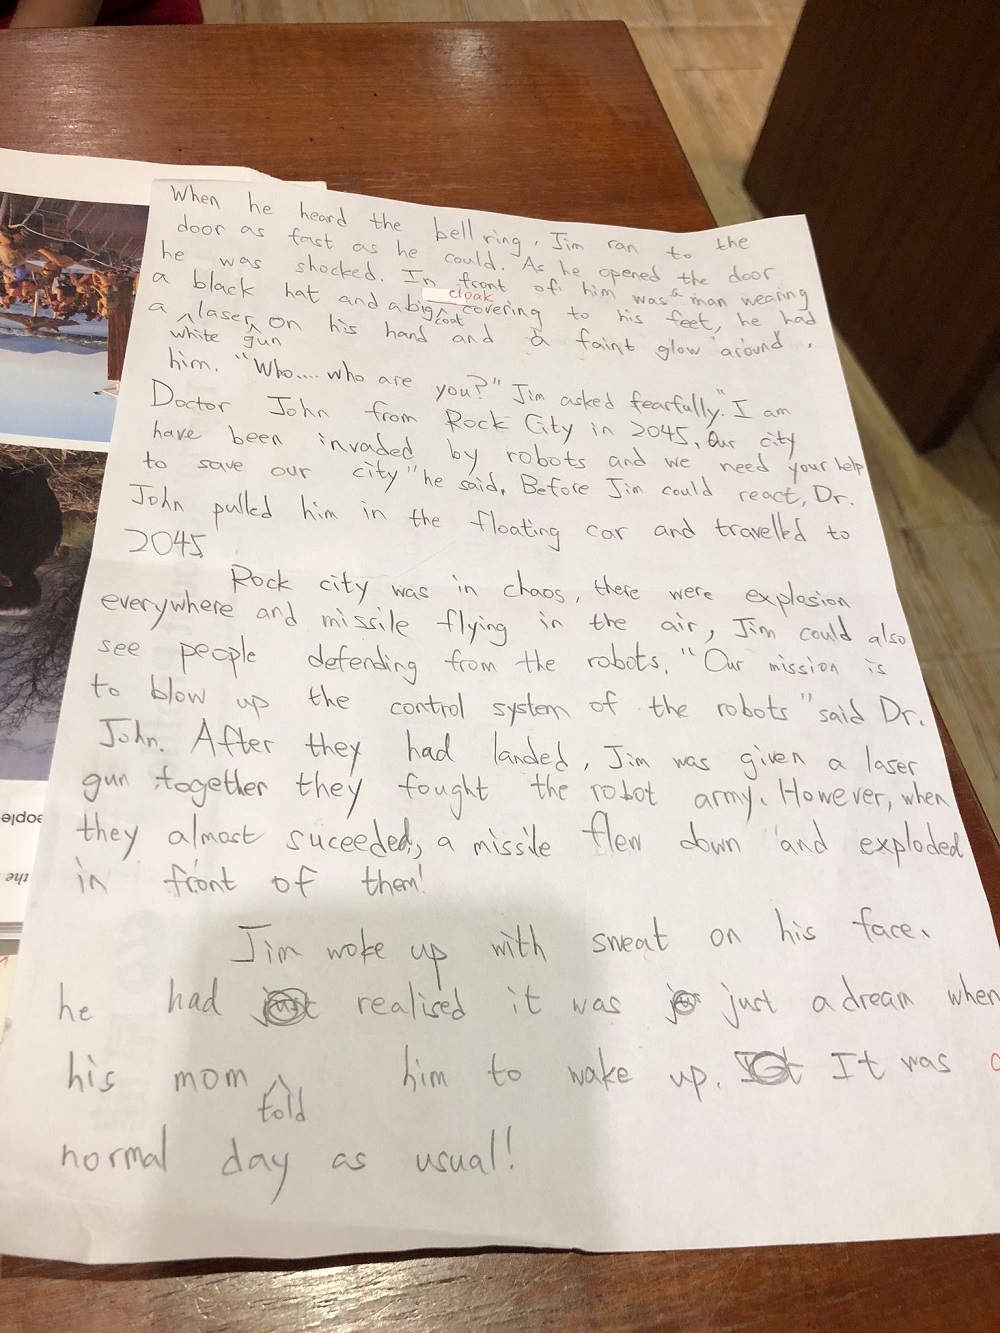 When he heard the bell ring, Jim ran to the
door as fast as he could. As he opened the door
he was shocked. In front of him was a man wearing
cloak
a black hat and a big coat covering to his feet, he had
a white laser gun on his hand and a faint glow around
him. "Who.... who are you?" Jim asked fearfully. "I am
Doctor John from Rock City in 2045. Our city
have been invaded by robots and we need your help
to save our city" he said. Before Jim could react, Dr.
John pulled him in the floating car and travelled to
2045
Rock city was in chaos, there were explosion
everywhere and missile flying in the air, Jim could also
see people defending from the robots. "Our mission is
to blow up the control system of the robots" said Dr.
John. After they had landed, Jim was given a laser
gun together they fought the robot army. However, when
they almost suceeded, a missile flew down and exploded
in front of them!
Jim woke up with sweat on his face.
he had realised it was just a dream when
his mom told him to wake up. It was
normal day as usual!
the